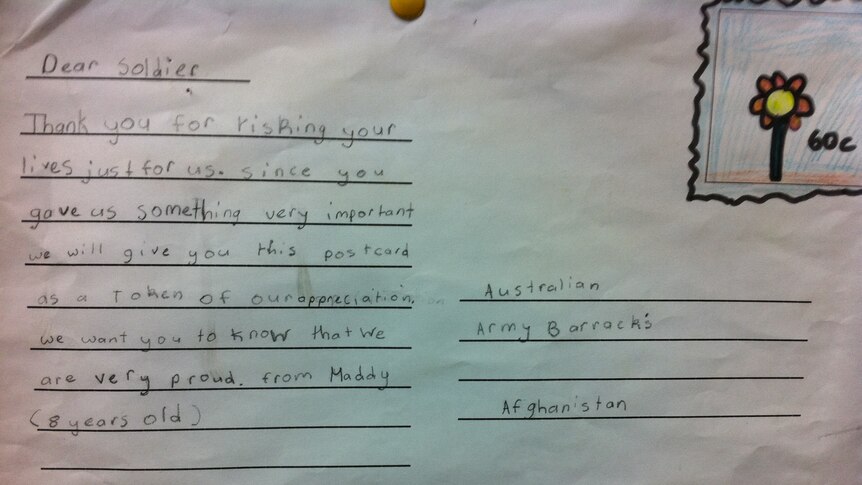 Dear Soldier
Thank you for risking your
lives just for us. since you
gave us something very important
we will give you this postcard
as a Token of our appreciation.
we want you to know that we
are very proud. from Maddy
(8 years old)
60c
Australian
Army Barrack's
Afghanistan